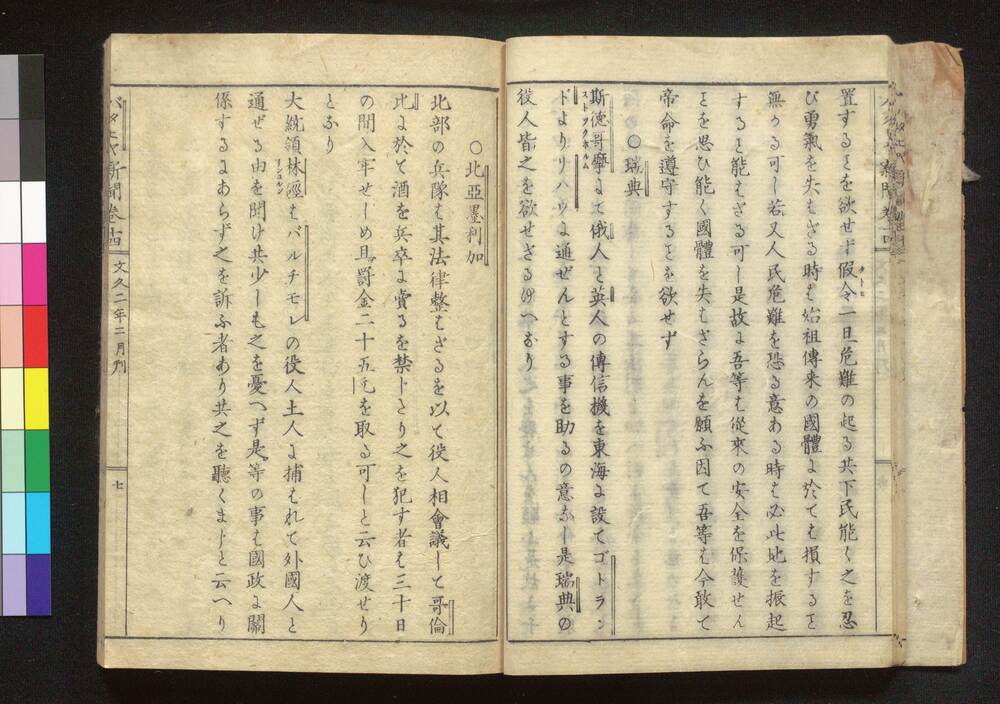 置するヿを欲せず假令一旦危難の起る共下民能く之を忍
び勇氣を失はざる時は始祖傳来の國體に於ても損するヿ
無かる可し若又人民危難を恐る意ある時は必此地を振起
するヿ能はざる可し是故に吾等は從來の安全を保護せん
ヿを思ひ能く國體を失はざらんを願ふ因て吾等は今敢て
帝命を遵守するヿを欲せず
○瑞典
斯德哥摩にて俄人と英人の傳信機を東海に設てゴトラン
ストックホルム
ドよりリバウに通ぜんとする事を助るの意なし是瑞典の
役人皆之を欲せざる所へなり
○北亞墨利加
北部の兵隊は其法律整はざるを以て役人相會議して哥倫
比に於て酒を兵卒に賣るを禁じたり之を犯す者は三十日
の間入牢せしめ且罰金二十五元を取る可しと云ひ渡せり
となり
大統領林澀はバルチモレの役人土人に捕はれて外國人と
リンコルン
通ぜる由を聞け共少しも之を憂へず是等の事は國政に關
係するにあらず之を訴ふ者あり共之を聽くまじと云へり
バタヒヤ新聞卷十四
文久二年二月刊
七